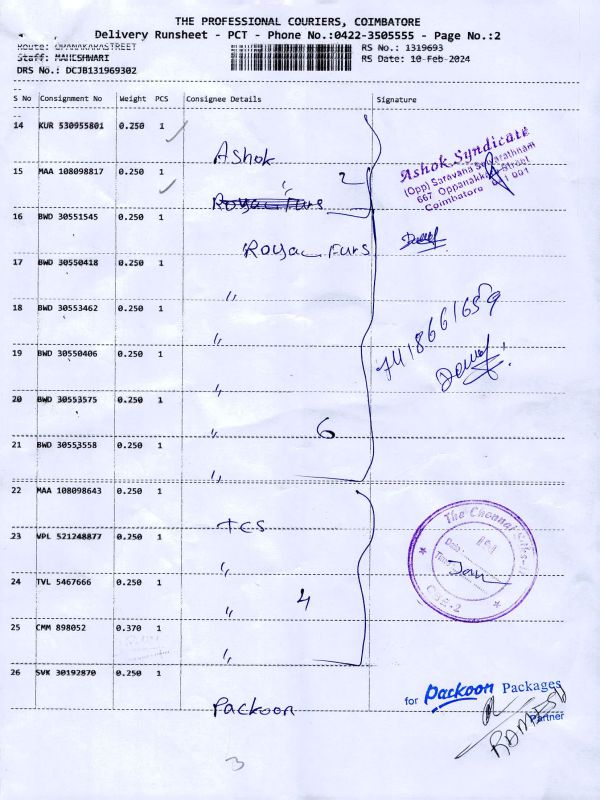 THE PROFESSIONAL COURIERS, COIMBATORE
Delivery Runsheet - PCT - Phone No.:0422-3505555 - Page No.:2
Route: OPANAKARASTREET
RS No.: 1319693
Staff: MAHESHWARI
RS Date: 10-Feb-2024
DRS No.: DCJB131969302
S No Consignment No Weight PCS Consignee Details Signature
14 KUR 530955801 0.250 1
Ashok
Ashok Syndicate
(Opp) Saravana Selvarathnam
667 Oppanakkara Street
Coimbatore
15 MAA 108098817 0.250 1
2
Royal Furs
16 BWD 30551545 0.250 1
Royal Furs
17 BWD 30550418 0.250 1
"
18 BWD 30553462 0.250 1
"
7418661659
19 BWD 30550406 0.250 1
"
20 BWD 30553575 0.250 1
" 6
21 BWD 30553558 0.250 1
"
22 MAA 108098643 0.250 1
TCS
The Chennai Silks
Date:
Time:
CBE-1
23 VPL 521248877 0.250 1
"
24 TVL 5467666 0.250 1
" 4
25 CMM 898052 0.370 1
"
26 SVK 30192870 0.250 1
Packoon
for Packoon Packages
Partner
RAMESH
3